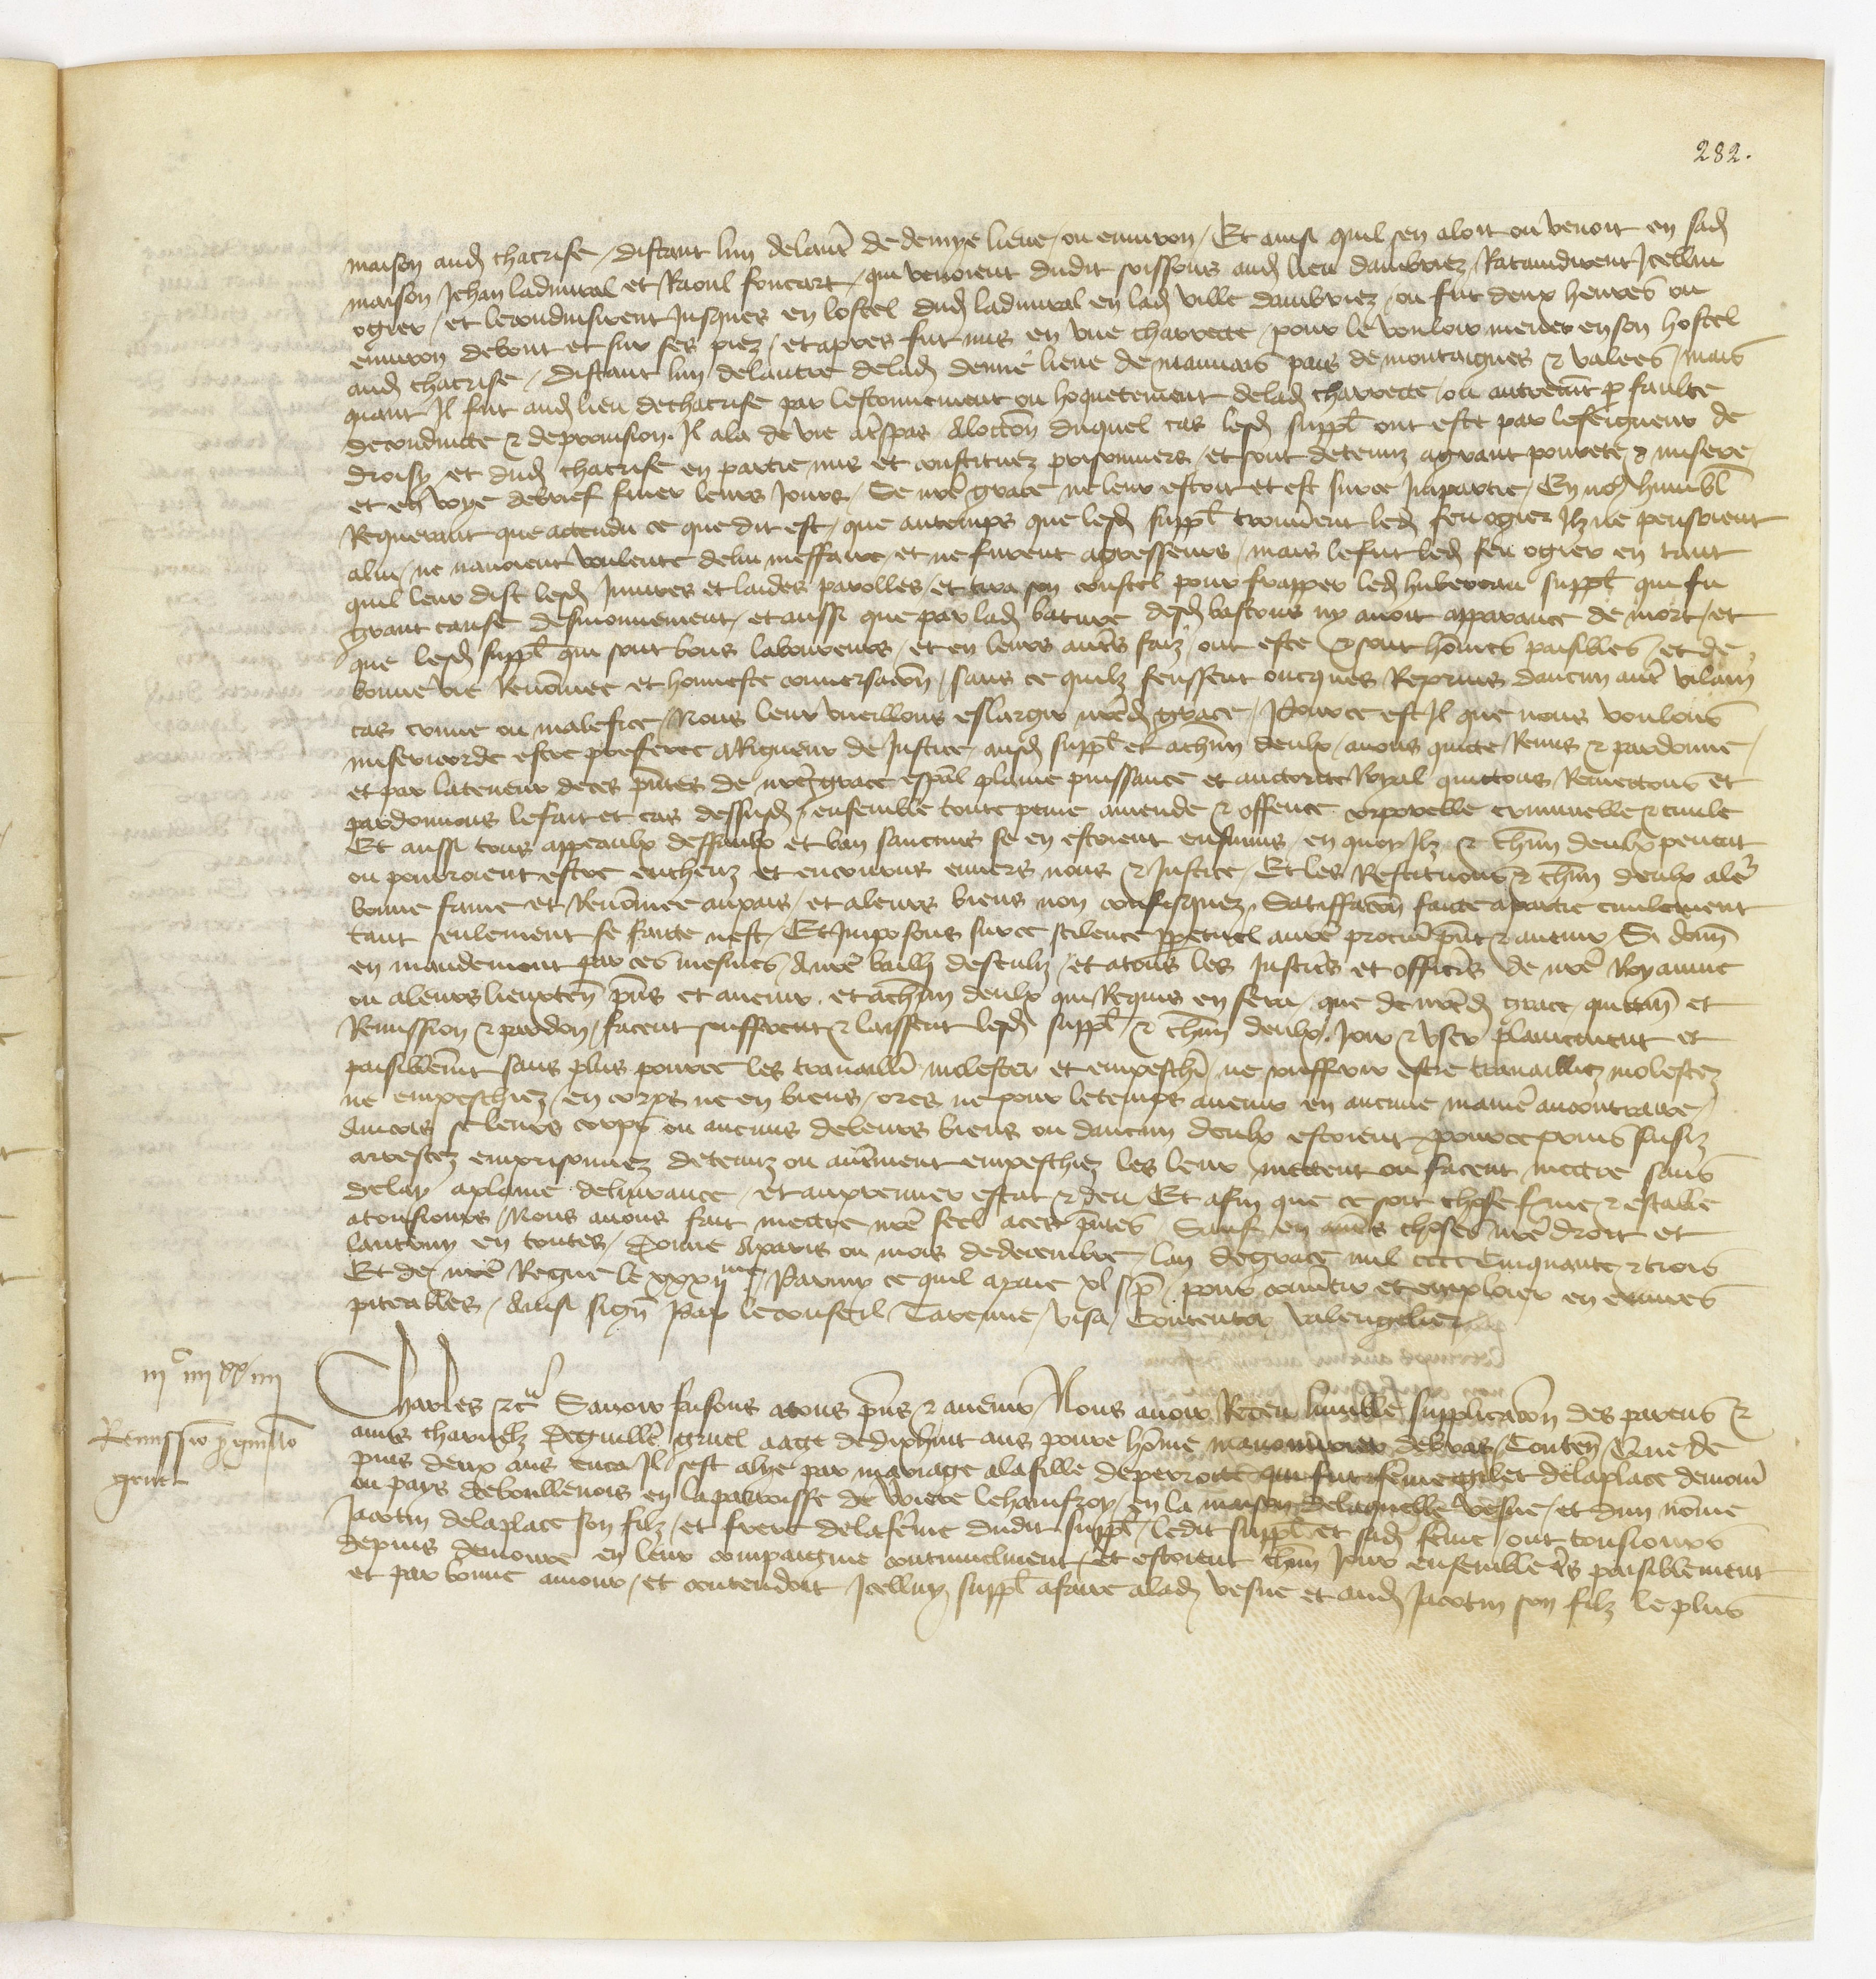 282.
maison aud chacrise / distant lun delautre de demye lieue / ou environ / Et ainsi quil sen aloit ou venoit en sad
maison Jehan ladmiral et Raoul foucart / qui venoient dudit soissons aud lieu dambriez / Rataindirent Icellui
ogier / et leconduisirent Jusques en lostel dud ladmiral en lad ville dambriez / ou fut deux heures ou
environ debout et sur ses piez / et apres fut mis en une charrecte / pour le vouloir mener enson hostel
aud chacrise / distant lun delautre delad demie lieue de mauvais pais de montaignes & valees / mais
quant Il fut aud lieu dechacrise par lestonnement ou hoquetement delad charrecte / ou autrement p faulte
deconduicte & deprovision . Il ala de vie a trespas Aloccon duquel cas lesd suppl ont este par leseigneur de
droisy / et dud chacrise en partie mis et constituez prisonniers / et sont detenuz agrant povrete & misere
et en voye debrief finer leurs Jours / Se nre grace ne leur estoit et est surce Impartie / En nous humbl
Requerant que actendu ce que dit est / que autemps que lesd suppl trouverent led feu ogier Ilz ne pensoient
alui / ne navoient voulente delui meffaire / et ne furent agresseurs / mais lefut led feu ogier en tant
quil leur dist lesd Injures et laides parolles / et tira son coustel pour frapper led huberveau suppl qui fu
grant cause desmouvement / et aussi que par lad bature desd bastons ny avoit apparance de mort / et
que lesd suppl qui sont bons laboureurs / et en leurs autres faiz ont este & sont hommes paisibles / et de
bonne vie Renommee et honneste conversacon / sans ce quilz feussent oncques Reprins daucun autre vilain
cas crime ou malefice / Nous leur vueillons eslargir nred grace / Pource est Il que nous voulons
misericorde estre preferee aRigueur de Justice ausd suppl et achun deulx / avons quicte Remis & pardonne /
et par lateneur deces pntes de nre grace espal plaine puissance et auctorite Royal quictons Remectons et
pardonnons lefait et cas dessusd / ensemble toute peine amende & offence corporelle criminelle & civile
Et aussi tous appeaulx deffaulx et ban saucuns se en estoient ensuivis / en quoy Ilz & chun deulx peuent
ou pourroient estre encheuz et encourus envers nous & Justice / Et les Restituons & chun deulx aleur
bonne fame et Renommee aupais / et aleurs biens non confisquez . Satisfacon faicte apartie civilement
tant seulement se faicte nest / Et Imposons surce scilence ppetuel anre procur pnt & avenir / Si donn
en mandement par ces mesmes Anre bailli desenliz / et atous les Justiciers et officiers de nre Royaume
ou aleurs lieuxten pns et avenir . et achun deulx qui Requis en sera / que de nred grace quittan et
Remission & pardon / facent souffrent & laissent lesd suppl & chun deulx Joir & user plainement et
paisiblement sans plus pource les travaillier molester et empeschier ne souffrir estre travailliez molestez
ne empeschiez / en corps ne en biens / ores ne pour letemps avenir en aucune maniere aucontraire /
Aincois se leurs corps ou aucuns deleurs biens ou daucun deulx estoient pource prins saisiz
arrestez emprisonnez detenuz ou autrement empeschiez les leur mectent ou facent mectre sans
delay aplaine delivrance / et aupremier estat & deu Et afin que ce soit chose ferme & estable
atousjours / Nous avons fait mectre nre seel aces pntes Sauf en autres choses nre droit et
lautruy en toutes / Donne Aparis ou mois dedecembre / lan degrace mil cccc Cinquante & trois
Et de nre Regne le xxxii me / Parmy ce quil apaie xl s p pour convertir et emploier en euvres
piteables / Ainsi signe Par leconseil Tarenne / visa / Contentor Valengelier

iii c iiii xx iiii
Remissio p guillo
gruel
Charles &c Savoir faisons atous pns & avenir / Nous avoir Receu lumble supplicacon des parens &
amis charnelz deguille gruel aage dedixhuit ans povre homme manouvrier debras / Conten Que de
puis deux ans enca Il sest alye par mariage alafille deperrotte qui fut femme gilet delaplace demour
ou pays deboullenois en laparroisse de wiere lehamfroy / en la maison delaquelle vesve / et dun nomme
Jacotin delaplace son filz / et frere delafemme dudit suppl / ledit suppl et sad femme / ont tousjours
depuis demoure en leur compaignie continuelment / et estoient chun Jour ensemble tres paisiblement
et par bonne amour / et contendoit Icelluy suppl afaire alad vesve et aud Jacotin son filz le plus